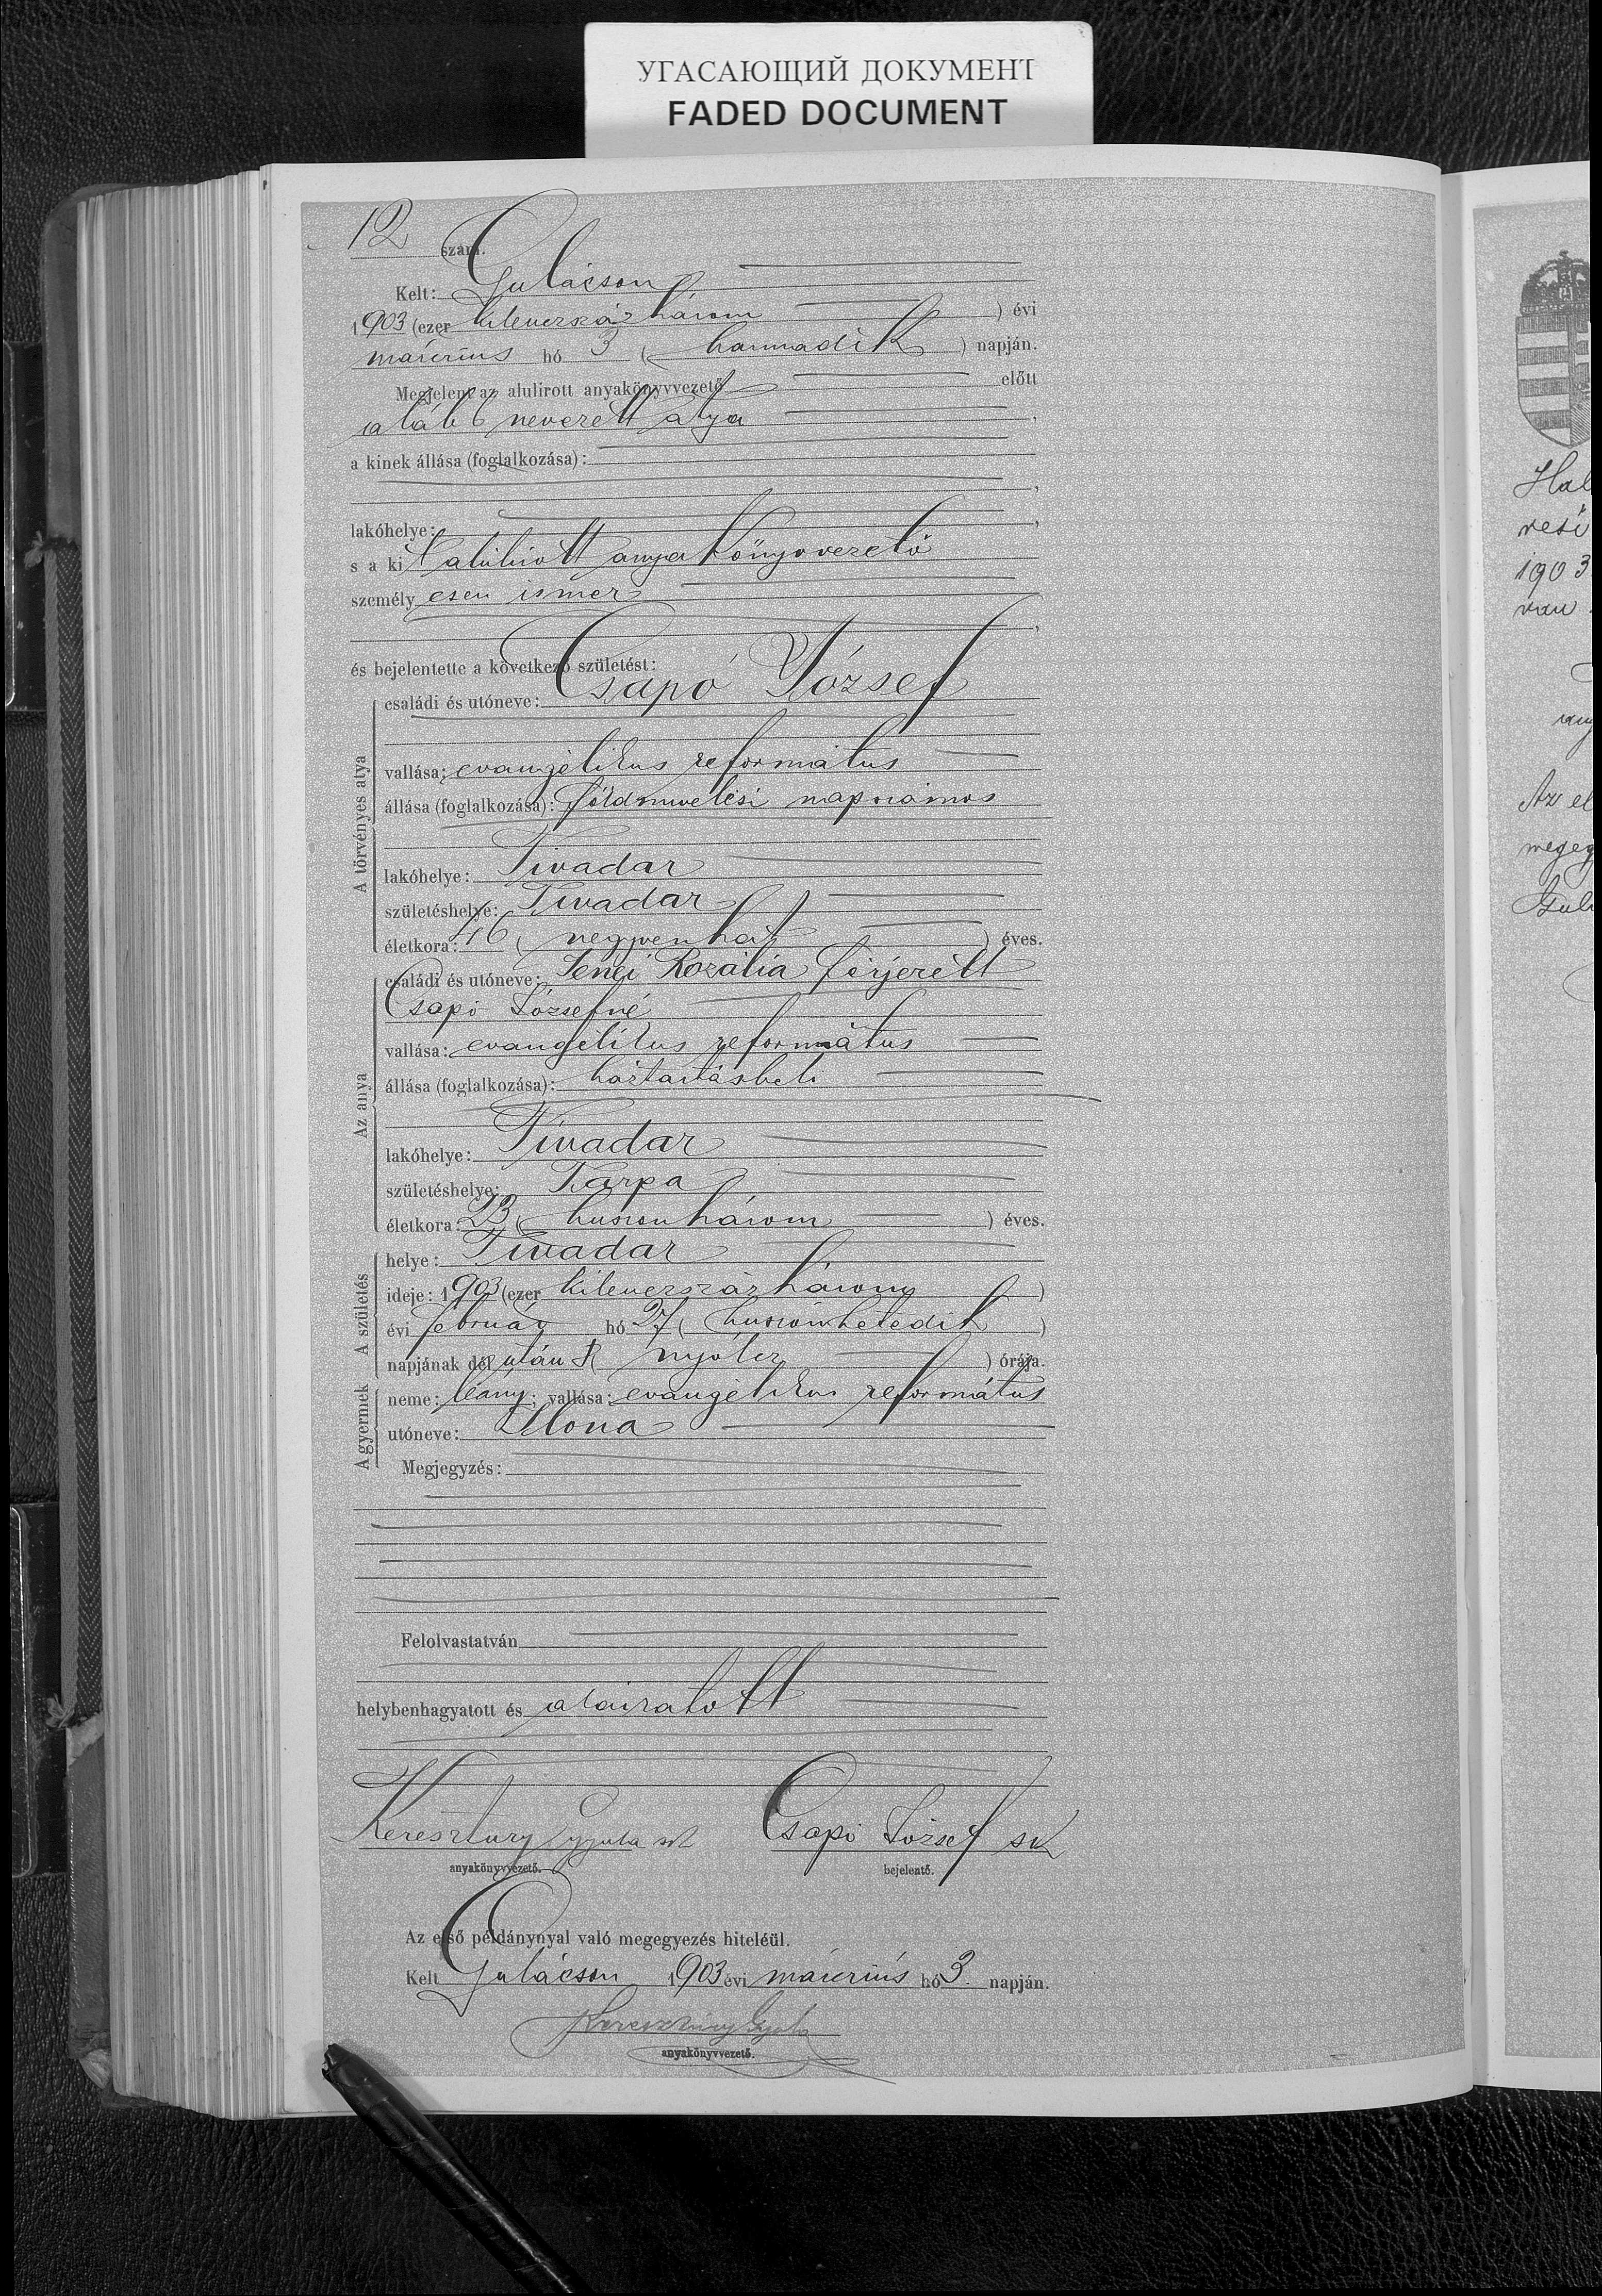 УГАСАЮЩИЙ ДОКУМЕНТ
FADED DOCUMENT
12 szám.
Kelt: Gulácson
1903 (ezer kilenczszázhárom ) évi
márczius hó 3 ( harmadik ) napján.
Megjelent az alulirott anyakönyvvezető előtt
alább nevezett atya
a kinek állása (foglalkozása):
lakóhelye:
s a kit alulirott anyakönyvvezető
személyesen ismer
és bejelentette a következő születést:
A törvényes atya
családi és utóneve: Csapó József
vallása: evangélikus református
állása (foglalkozása): földmivelési napszámos
lakóhelye: Tivadar
születéshelye: Tivadar
életkora: 46 ( negyvenhat ) éves.
Az anya
családi és utóneve: Rozália férjezett
Csapó Józsefné
vallása: evangélikus református
állása (foglalkozása): háztartásbeli
lakóhelye: Tivadar
születéshelye: Tarpa
életkora: 23 ( huszonhárom ) éves.
A születés
helye: Tivadar
ideje: 1903 (ezer kilenczszázhárom )
évi február hó 27 ( huszonhetedik )
napjának dél után 8 ( nyolcz ) órája.
A gyermek
neme: leány; vallása: evangélikus református
utóneve: Ilona
Megjegyzés:
Felolvastatván
helybenhagyatott és aláiratott
Keresztury Gyula sk Csapó József sk
anyakönyvvezető. bejelentő.
Az első példánynyal való megegyezés hiteléül.
Kelt Gulácson 1903 évi márczius hó 3. napján.
Keresztury Gyula
anyakönyvvezető.
Hal
1903
van
Az el
megeg